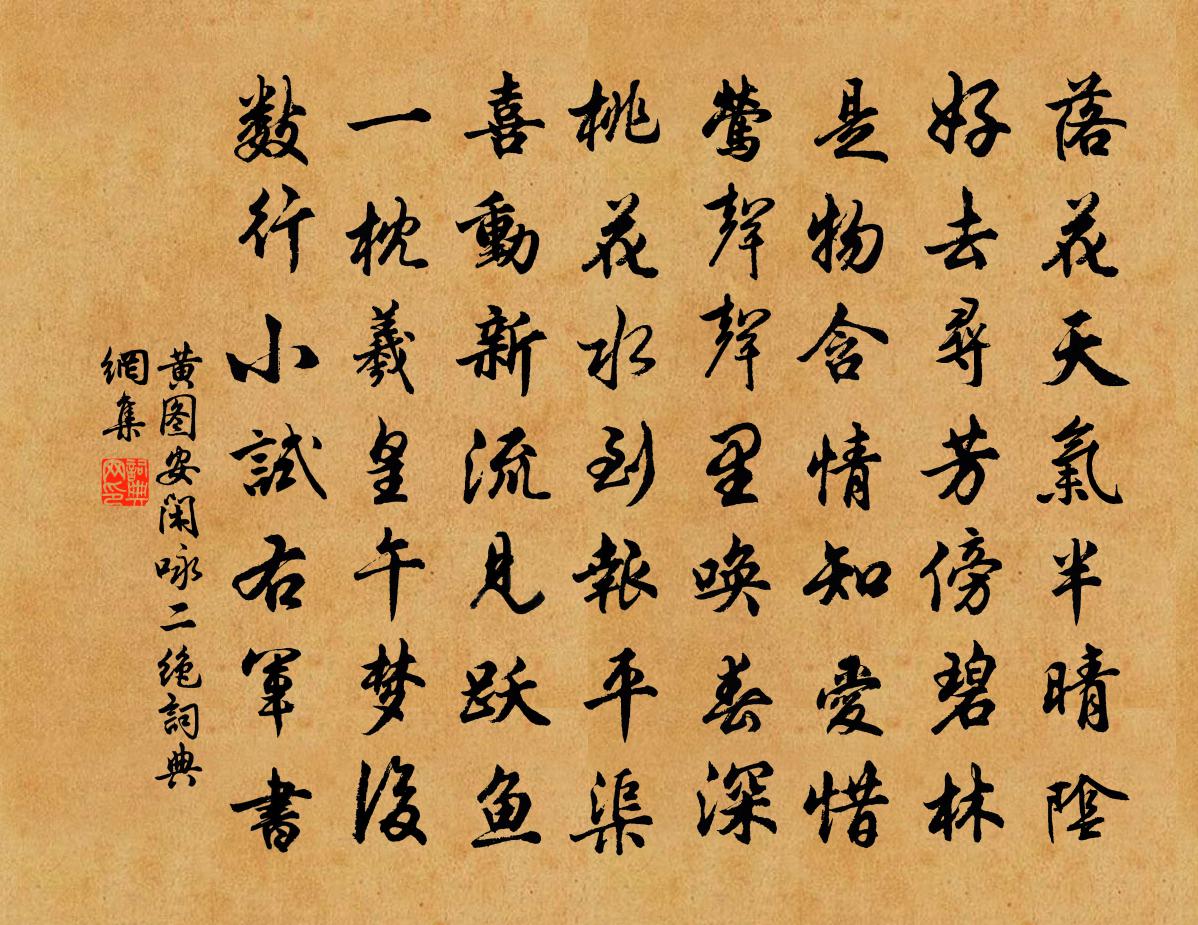 落花天氣半晴陰
好去尋芳傍碧林
是物含情知愛惜
鶯聲聲里喚春深
桃花水到報平渠
喜動新流見跃鱼
一枕羲皇午梦後
数行小試右軍書
黄图安閑咏二绝詞典
網集
詞典網印